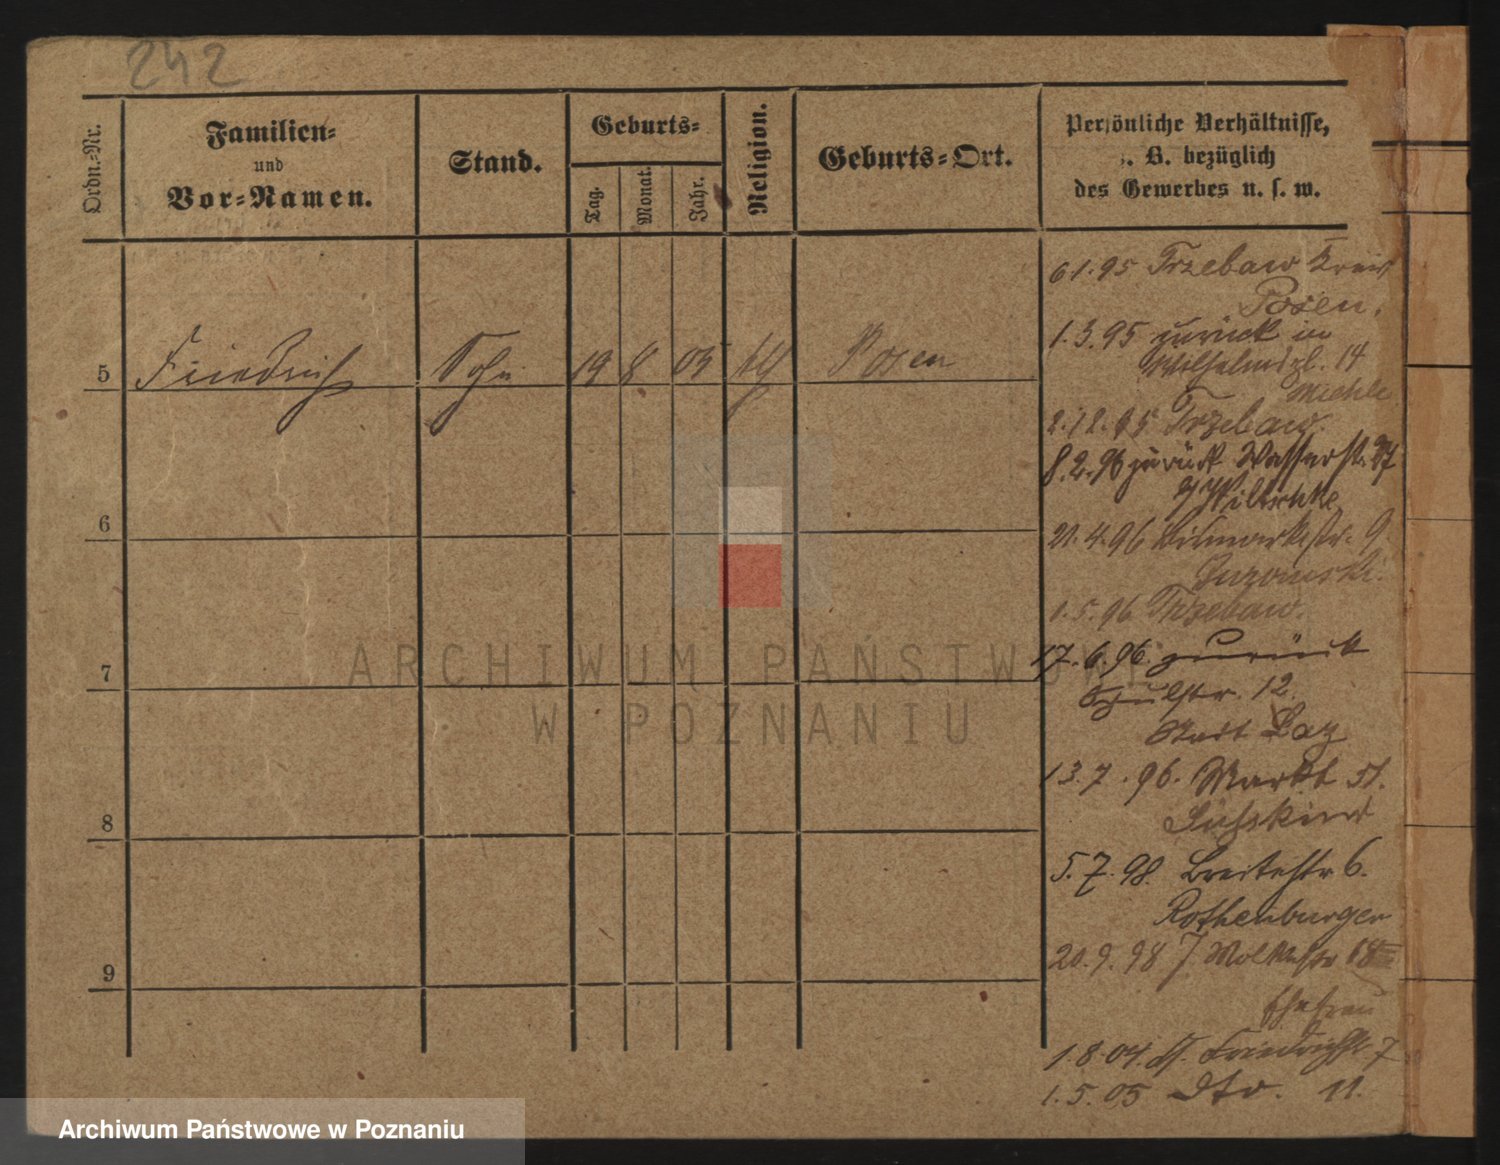 242
Ordn.-Nr.
Familien-
und
Vor-Namen.
Stand.
Geburts-
Tag.
Monat.
Jahr.
Religion.
Geburts-Ort.
Persönliche Verhältnisse,
z. B. bezüglich
des Gewerbes u. s. w.
6 1. 95 Trzebaw Kreis
Posen.
1. 3. 95 zurück in
Wilhelmspl. 14
5 Friedrich Sohn 19 8 05 Posen
2. 12. 95 Trzebaw.
8. 2. 96 zurück Wasserstr. 27
6
21. 4. 96 Bismarckstr. 9.
1. 5. 96 Trzebaw.
ARCHIWUM PAŃSTWOWE
W POZNANIU
17. 6. 96 zurück
7
Schulstr. 12.
Stadt
13. 7. 96. Markt 51.
8
Süßkind
5. 7. 98. Breitestr 6.
Rothenburger
20. 9. 98 Moltkestr 18
9
Ehefrau
1. 8. 04. Friedrichstr. 7
1. 5. 05 Dto. 11.
Archiwum Państwowe w Poznaniu